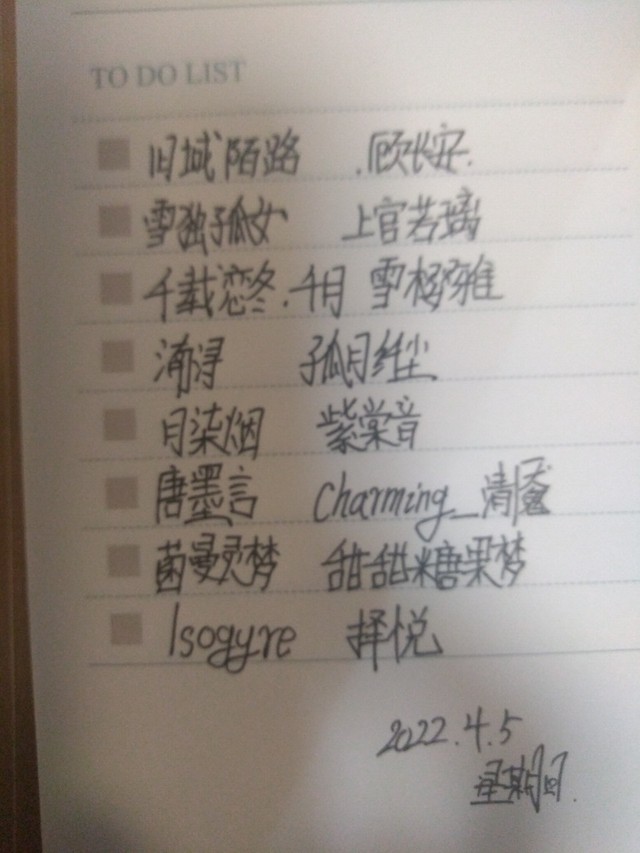 TO DO LIST
旧城陌路 顾长安.
雪独孤女 上官若璃
千载恋冬.千月 雪樱雅
浠浔 孤月纤尘
月染烟 紫棠音
唐墨言 Charming_清
茵曼灵梦 甜甜糖果梦
Isogyre 择悦
2022.4.5
星期